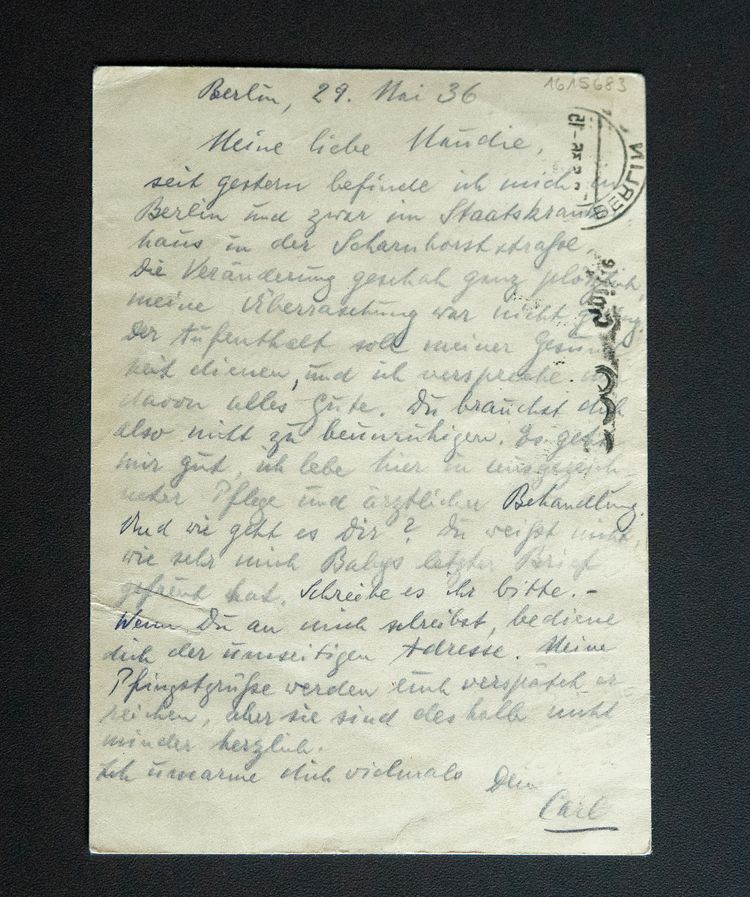 1615683
Berlin, 29. Mai 36
Meine liebe Maudie,
seit gestern befinde ich mich in
Berlin und zwar im Staatskranken
haus in der Scharnhorststraße
Die Veränderung geschah ganz plötzlich,
meine Überraschung war nicht gering.
Der Aufenthalt soll meiner Gesund
heit dienen, und ich verspreche mir
davon alles Gute. Du brauchst dich
also nicht zu beunruhigen. Es geht
mir gut, ich lebe hier in ausgezeich
neter Pflege und ärztlicher Behandlung.
Und wie geht es Dir? Du weißt nicht,
wie sehr mich Babys letzter Brief
gefreut hat. Schreibe es ihr bitte. –
Wenn Du an mich schreibst, bediene
dich der umseitigen Adresse. Meine
Pfingstgrüße werden euch verspätet er-
reichen, aber sie sind deshalb nicht
minder herzlich.
Ich umarme dich vielmals Dein
Carl
BERLIN